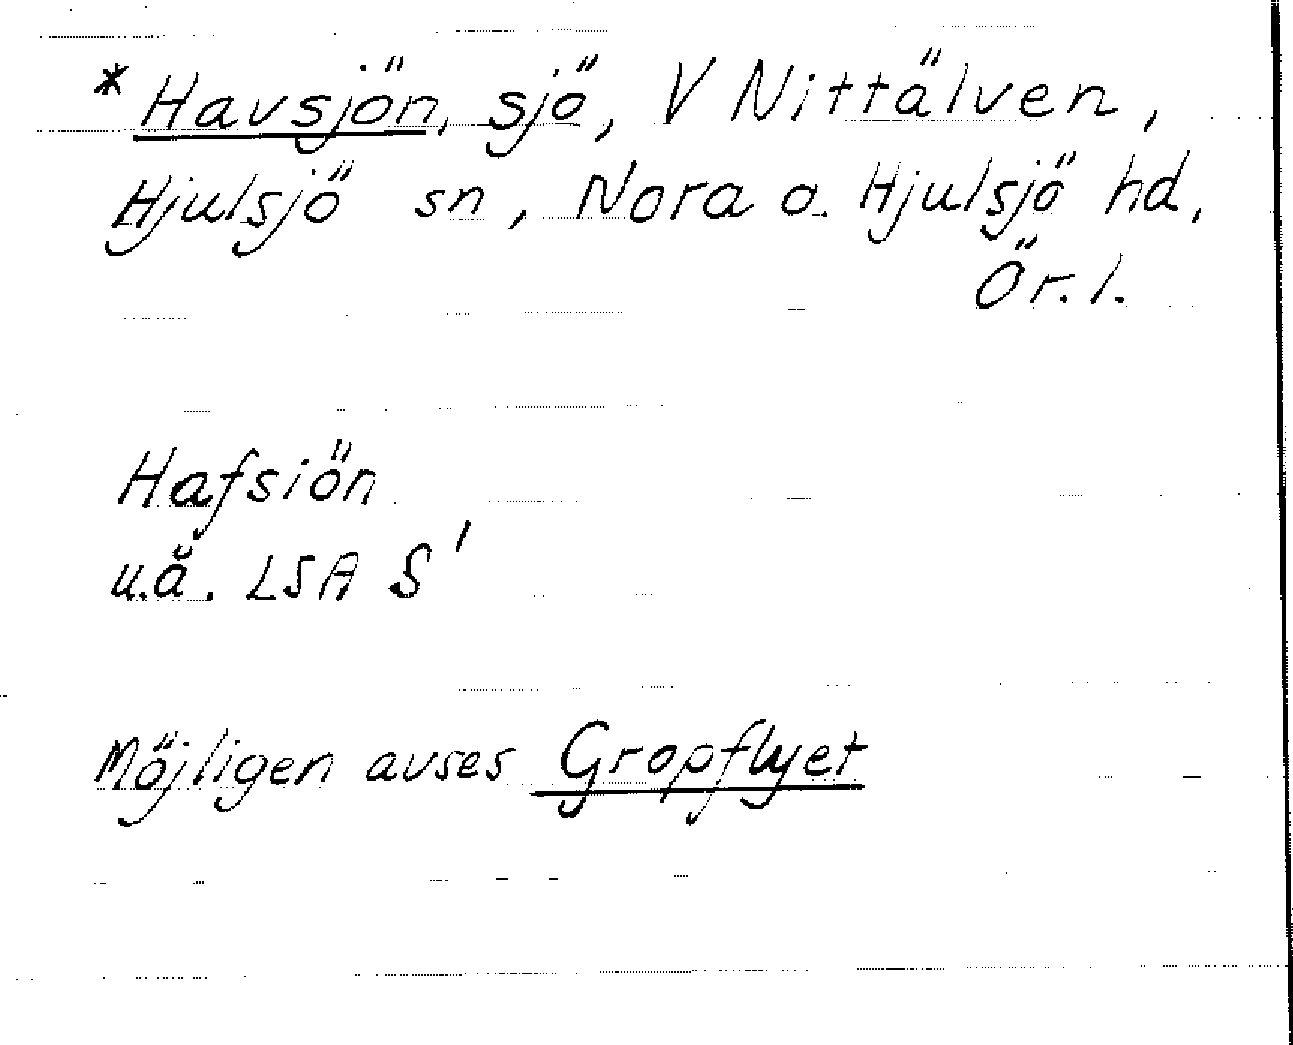 *Havsjön, sjö, V Nittälven,
Hjulsjö sn, Nora o. Hjulsjö hd,
Ör. l.
Hafsiön
u.å. LSA S'
Möjligen avses Gropflyet